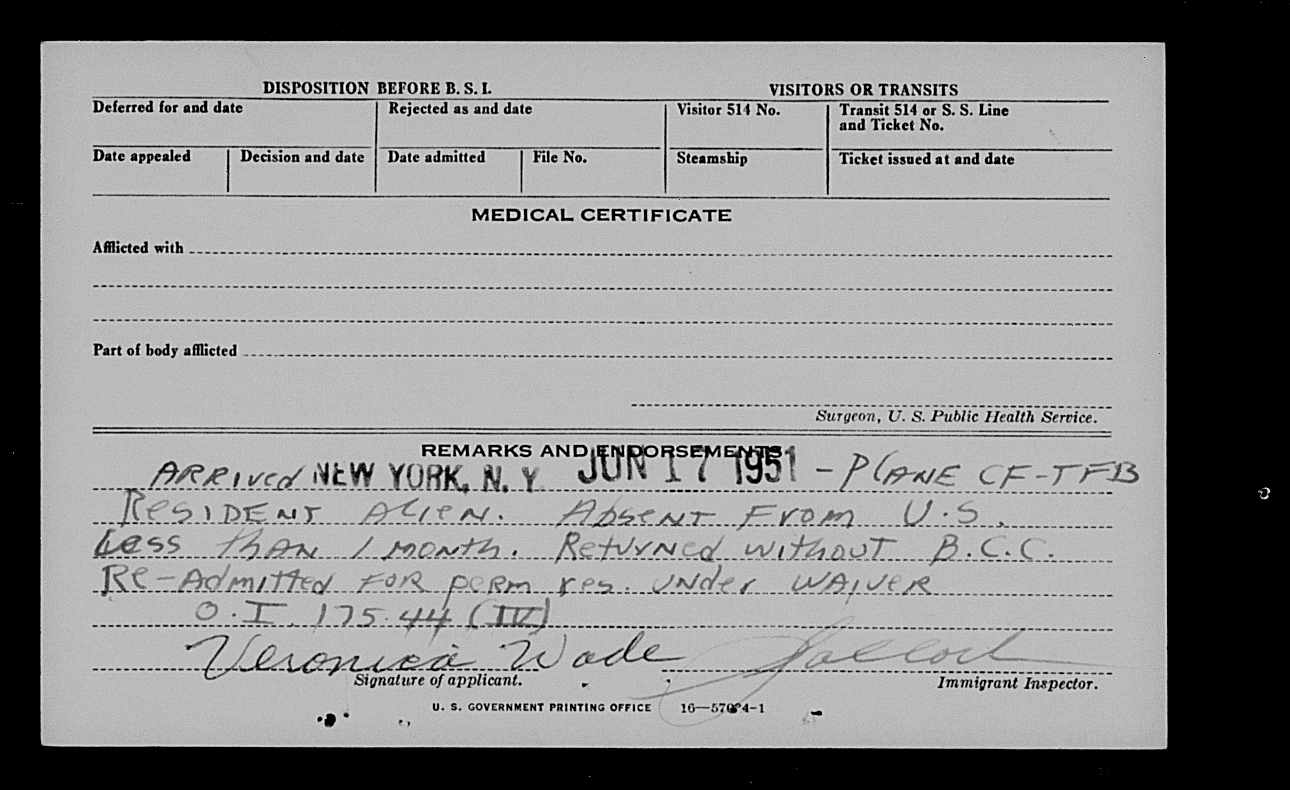 DISPOSITION BEFORE B. S. I. VISITORS OR TRANSITS
Deferred for and date Rejected as and date Visitor 514 No. Transit 514 or S. S. Line
and Ticket No.
Date appealed Decision and date Date admitted File No. Steamship Ticket issued at and date
MEDICAL CERTIFICATE
Afflicted with
Part of body afflicted
Surgeon, U. S. Public Health Service.
REMARKS AND ENDORSEMENTS
ARRIVED NEW YORK, N. Y. JUN 17 1951 - PLANE CF-TFB
RESIDENT ALIEN. ABSENT FROM U.S.
Less than 1 month. Returned without B.C.C.
Re-Admitted for perm res. under WAIVER
O.I. 175.44 (IV)
Veronica Wade
Signature of applicant. Immigrant Inspector.
U. S. GOVERNMENT PRINTING OFFICE